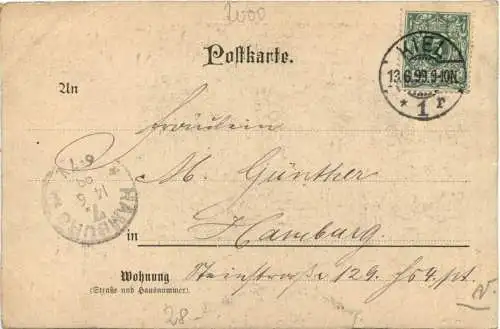 2000
Postkarte.
KIEL
13.6.99.9-10N.
* 1 r
An
Fräulein
M. Günther
HAMBURG
14 6 99
6-7V
in Hamburg.
Wohnung Steinstraße 129. Hs 4. pt.
(Straße und Hausnummer).
28-